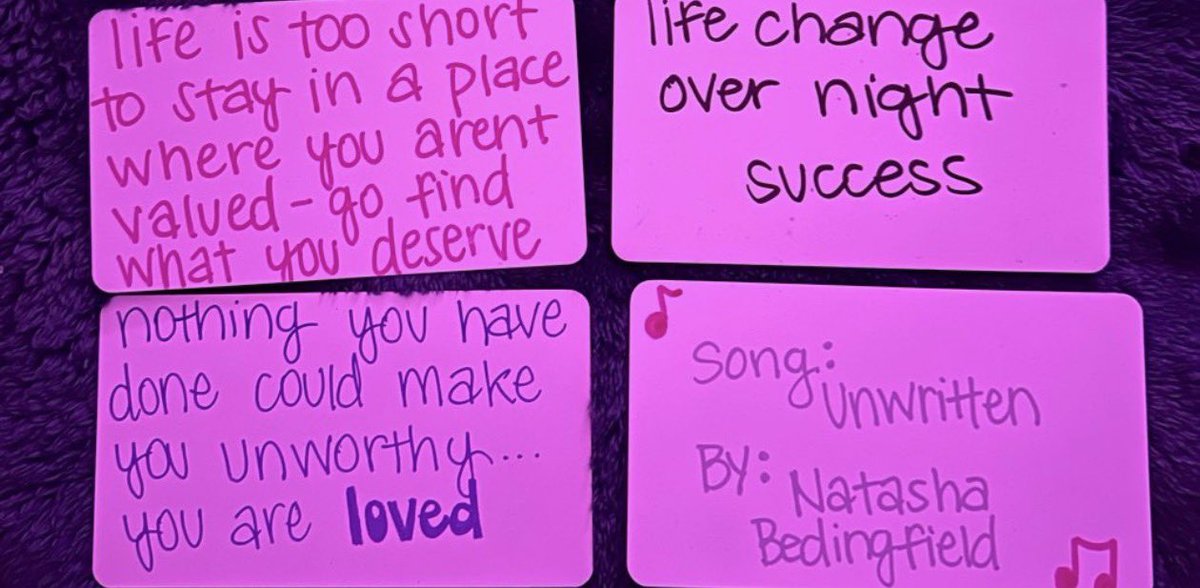 life is too short
to stay in a place
where you arent
valued - go find
what you deserve
life change
over night
success
nothing you have
done could make
you unworthy...
you are loved
Song:
Unwritten
By:
Natasha
Bedingfield